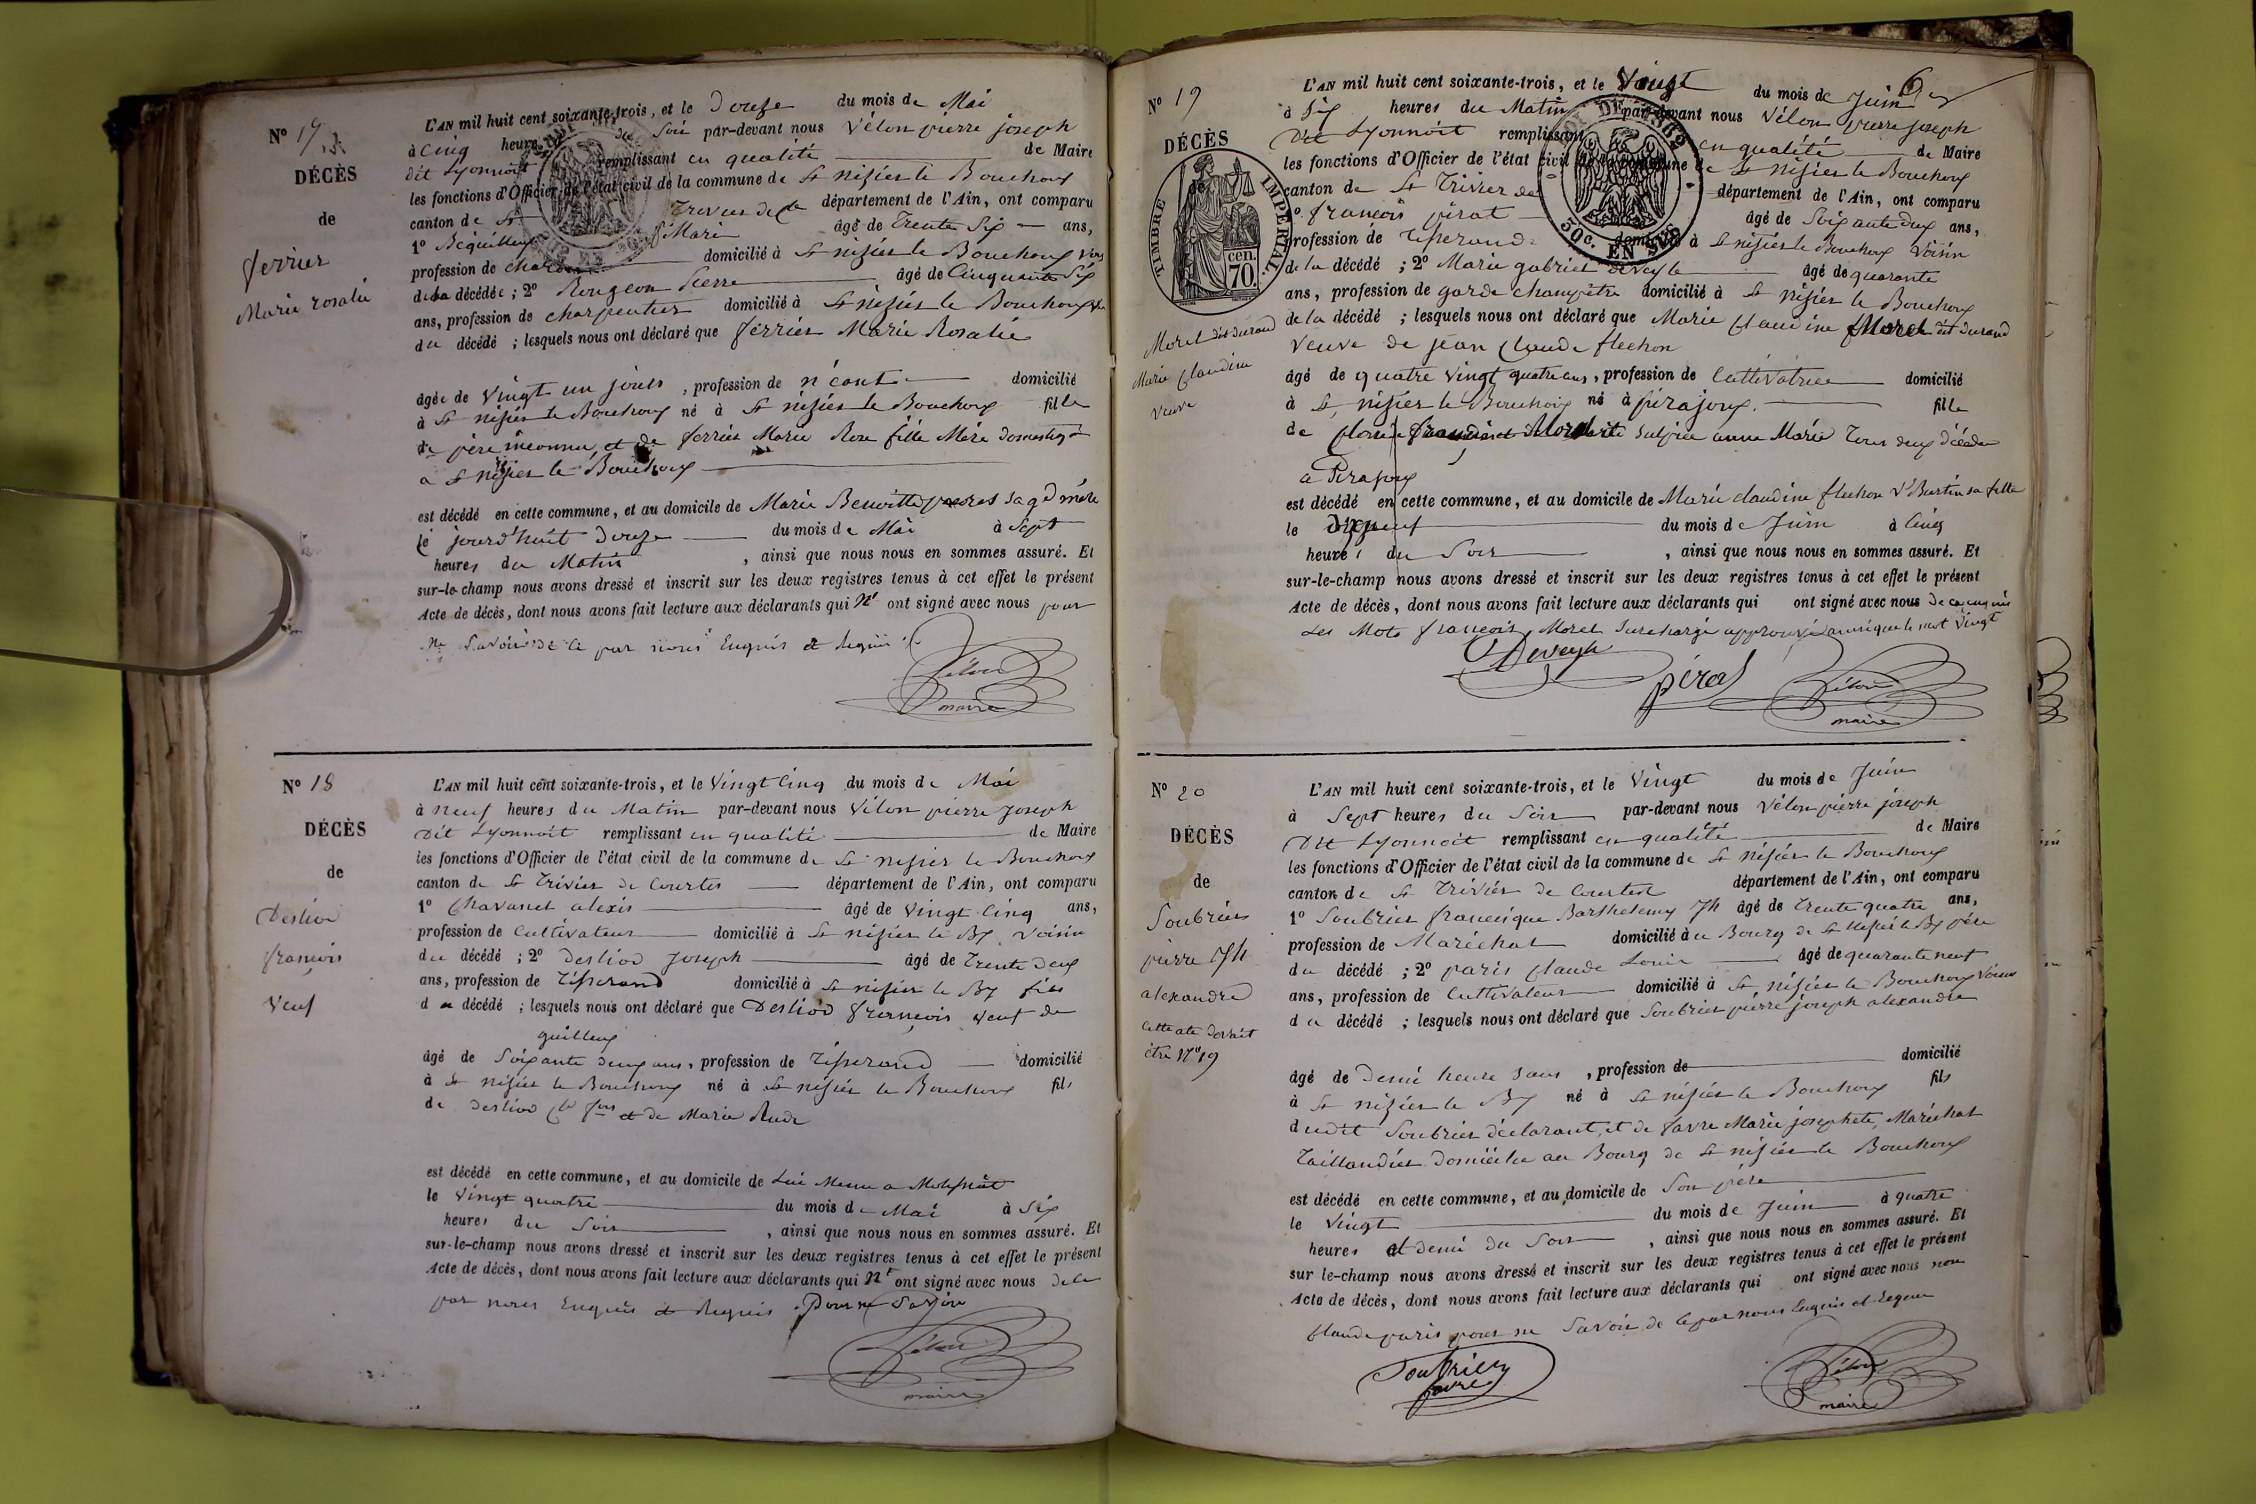 Nº 17
DÉCÈS
de
ferrier
Marie rosalie
L'AN mil huit cent soixante-trois, et le Douze du mois de Mai
à Cinq heures du Soir par-devant nous Vélon pierre joseph
dit Lyonnoit remplissant en qualité de Maire
les fonctions d'Officier de l'état civil de la commune de St nisier le Bouchoux
canton de St Trivier de département de l'Ain, ont comparu
1º Béquilleux Marin âgé de Trente Six ans,
profession de domicilié à St nizier le Bouchoux
de la décédée ; 2º Rougeon Pierre âgé de Cinquante Six
ans, profession de charpentier domicilié à St nizier le Bouchoux
du décédé ; lesquels nous ont déclaré que ferrier Marie Rosalie
agée de vingt un jours, profession de néant domicilié
à St nizier le Bouchoux né à St nizier le Bouchoux fille
de père inconnu, et de ferrier Marie Rose fille Mère domestique
a St nizier le Bouchoux
est décédé en cette commune, et au domicile de Marie Benoitte sa gd mère
le jourd'huit douze du mois de Mai à Sept
heures du Matin, ainsi que nous nous en sommes assuré. Et
sur-le-champ nous avons dressé et inscrit sur les deux registres tenus à cet effet le présent
Acte de décès, dont nous avons fait lecture aux déclarants qui n' ont signé avec nous pour
ne Savoir de ce par nous Enquis et Requis
Vélon
maire
Nº 18
DÉCÈS
de
Desliod
françois
Veuf
L'AN mil huit cent soixante-trois, et le Vingt Cinq du mois de Mai
à neuf heures du Matin par-devant nous Vélon pierre joseph
Dit Lyonnoit remplissant en qualité de Maire
les fonctions d'Officier de l'état civil de la commune de St nizier le Bouchoux
canton de St Trivier de Courtes département de l'Ain, ont comparu
1º Chavanel alexis âgé de vingt Cinq ans,
profession de Cultivateur domicilié à St nizier le Bx Voisin
du décédé ; 2º desliod joseph âgé de Trente deux
ans, profession de Tisserand domicilié à St nizier le Bx fils
du décédé ; lesquels nous ont déclaré que Desliod françois veuf de
guilleux
âgé de Soixante deux ans, profession de Tisserand domicilié
à St nizier le Bouchoux né à St nizier le Bouchoux fils
de desliod Cl fois et de Marie Rude
est décédé en cette commune, et au domicile de
le Vingt quatre du mois de Mai à Six
heures du Soir, ainsi que nous nous en sommes assuré. Et
sur-le-champ nous avons dressé et inscrit sur les deux registres tenus à cet effet le présent
Acte de décès, dont nous avons fait lecture aux déclarants qui n' ont signé avec nous de ce
par nous Enquis et Requis Pour ne Savoir
Vélon
maire
Nº 19
DÉCÈS
de
TIMBRE IMPÉRIAL
70 cen.
Morel dit durand
Marie Claudine
Veuve
L'AN mil huit cent soixante-trois, et le Vingt du mois de Juin
à Six heures du Matin par-devant nous Vélon pierre joseph
Dit Lyonnoit remplissant en qualité de Maire
les fonctions d'Officier de l'état civil de la commune de St nizier le Bouchoux
canton de St Trivier de département de l'Ain, ont comparu
1º françois pirat âgé de Soixante deux ans,
profession de Tisserand domicilié à St nizier le Bouchoux Voisin
de la décédé ; 2º Marie gabriel deveyle âgé de quarante
ans, profession de garde champêtre domicilié à St nizier le Bouchoux
de la décédé ; lesquels nous ont déclaré que Marie Claudine Morel dit durand
veuve de jean Claude flechon
âgé de quatre vingt quatre ans, profession de Cultivatrice domicilié
à St nizier le Bouchoux né à pirajoux. fille
de françois Morel et Sulpice anne Marie Tous deux décédés
a Pirajoux
est décédé en cette commune, et au domicile de Marie claudine flechon Ve Burtin sa fille
le dixneuf du mois de Juin à Cinq
heures du Soir, ainsi que nous nous en sommes assuré. Et
sur-le-champ nous avons dressé et inscrit sur les deux registres tenus à cet effet le présent
Acte de décès, dont nous avons fait lecture aux déclarants qui ont signé avec nous de ce enquis
Les Mots françois, Morel Surchargé approuvé ainsi que le mot Vingt
Deveyle
pirat
Vélon
maire
Nº 20
DÉCÈS
de
Soubrier
pierre Jh
alexandre
Cette acte devrait
être Nº 19
L'AN mil huit cent soixante-trois, et le Vingt du mois de Juin
à Sept heures du Soir par-devant nous Vélon pierre joseph
Dit Lyonnoit remplissant en qualité de Maire
les fonctions d'Officier de l'état civil de la commune de St Nizier le Bouchoux
canton de St Trivier de Courtes département de l'Ain, ont comparu
1º Soubrier francisque Barthelemy Jh âgé de Trente quatre ans,
profession de Maréchal domicilié au Bourg de St Nizier le Bx père
du décédé ; 2º paris Claude Louis âgé de quarante neuf
ans, profession de Cultivateur domicilié à St nizier le Bouchoux Voisin
du décédé ; lesquels nous ont déclaré que Soubrier pierre joseph alexandre
âgé de Demi heure Sans, profession de domicilié
à St nizier le Bx né à St nizier le Bouchoux fils
dudit Soubrier déclarant, et de favre Marie josephete, Maréchal
Taillandier domicilié au Bourg de St nizier le Bouchoux
est décédé en cette commune, et au domicile de Son père
le Vingt du mois de Juin à quatre
heures et demi du Soir, ainsi que nous nous en sommes assuré. Et
sur le-champ nous avons dressé et inscrit sur les deux registres tenus à cet effet le présent
Acte de décès, dont nous avons fait lecture aux déclarants qui ont signé avec nous non
Claude paris pour ne Savoir de ce par nous Enquis et Requis
Soubrier
favre
Vélon
maire